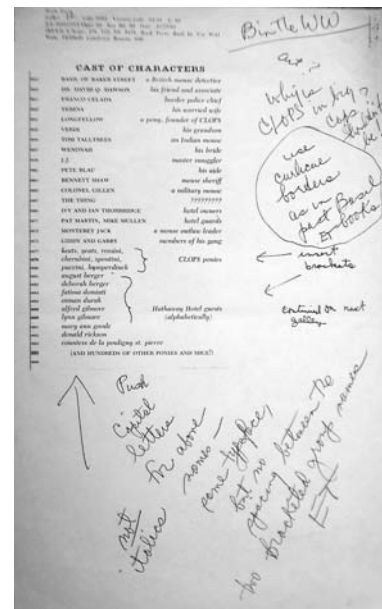 B in The WW
CAST OF CHARACTERS
BASIL OF BAKER STREET a British mouse detective
DR. DAVID Q. DAWSON his friend and associate
FRANCO CELADA border police chief
TERESA his worried wife
LONGFELLOW a pony, founder of CLOPS
VERSE his grandson
TOM TALLTREES an Indian mouse
WENDNAH his bride
J.J. master smuggler
PETE BLAU his aide
BENNETT SHAW mouse sheriff
COLONEL GILLEN a military mouse
THE THING ?????????
IVY AND IAN THORBRIDGE hotel owners
PAT MARTIN, MIKE MULLEN hotel guards
MONTEREY JACK a mouse outlaw leader
GIDDY AND GABBY members of his gang
keats, yeats, rossini,
cherubini, spontini, CLOPS ponies
puccini,
august berger
deborah berger
fatima doniati
osman durak
alfred gilmore Hathaway Hotel guests
lynn gilmore (alphabetically)
mary ann goode
donald rickson
countess de la pouligny st. pierre
(AND HUNDREDS OF OTHER PONIES AND MICE!)
why is
CLOPS in
caps
shouldn't
be
use
curlicue
borders
as in
past Basil
books
insert
brackets
continued on next
galley
Push
Capital
letters
for above
names —
same typeface,
but no
spacing between the
two bracketed group names
not
italics